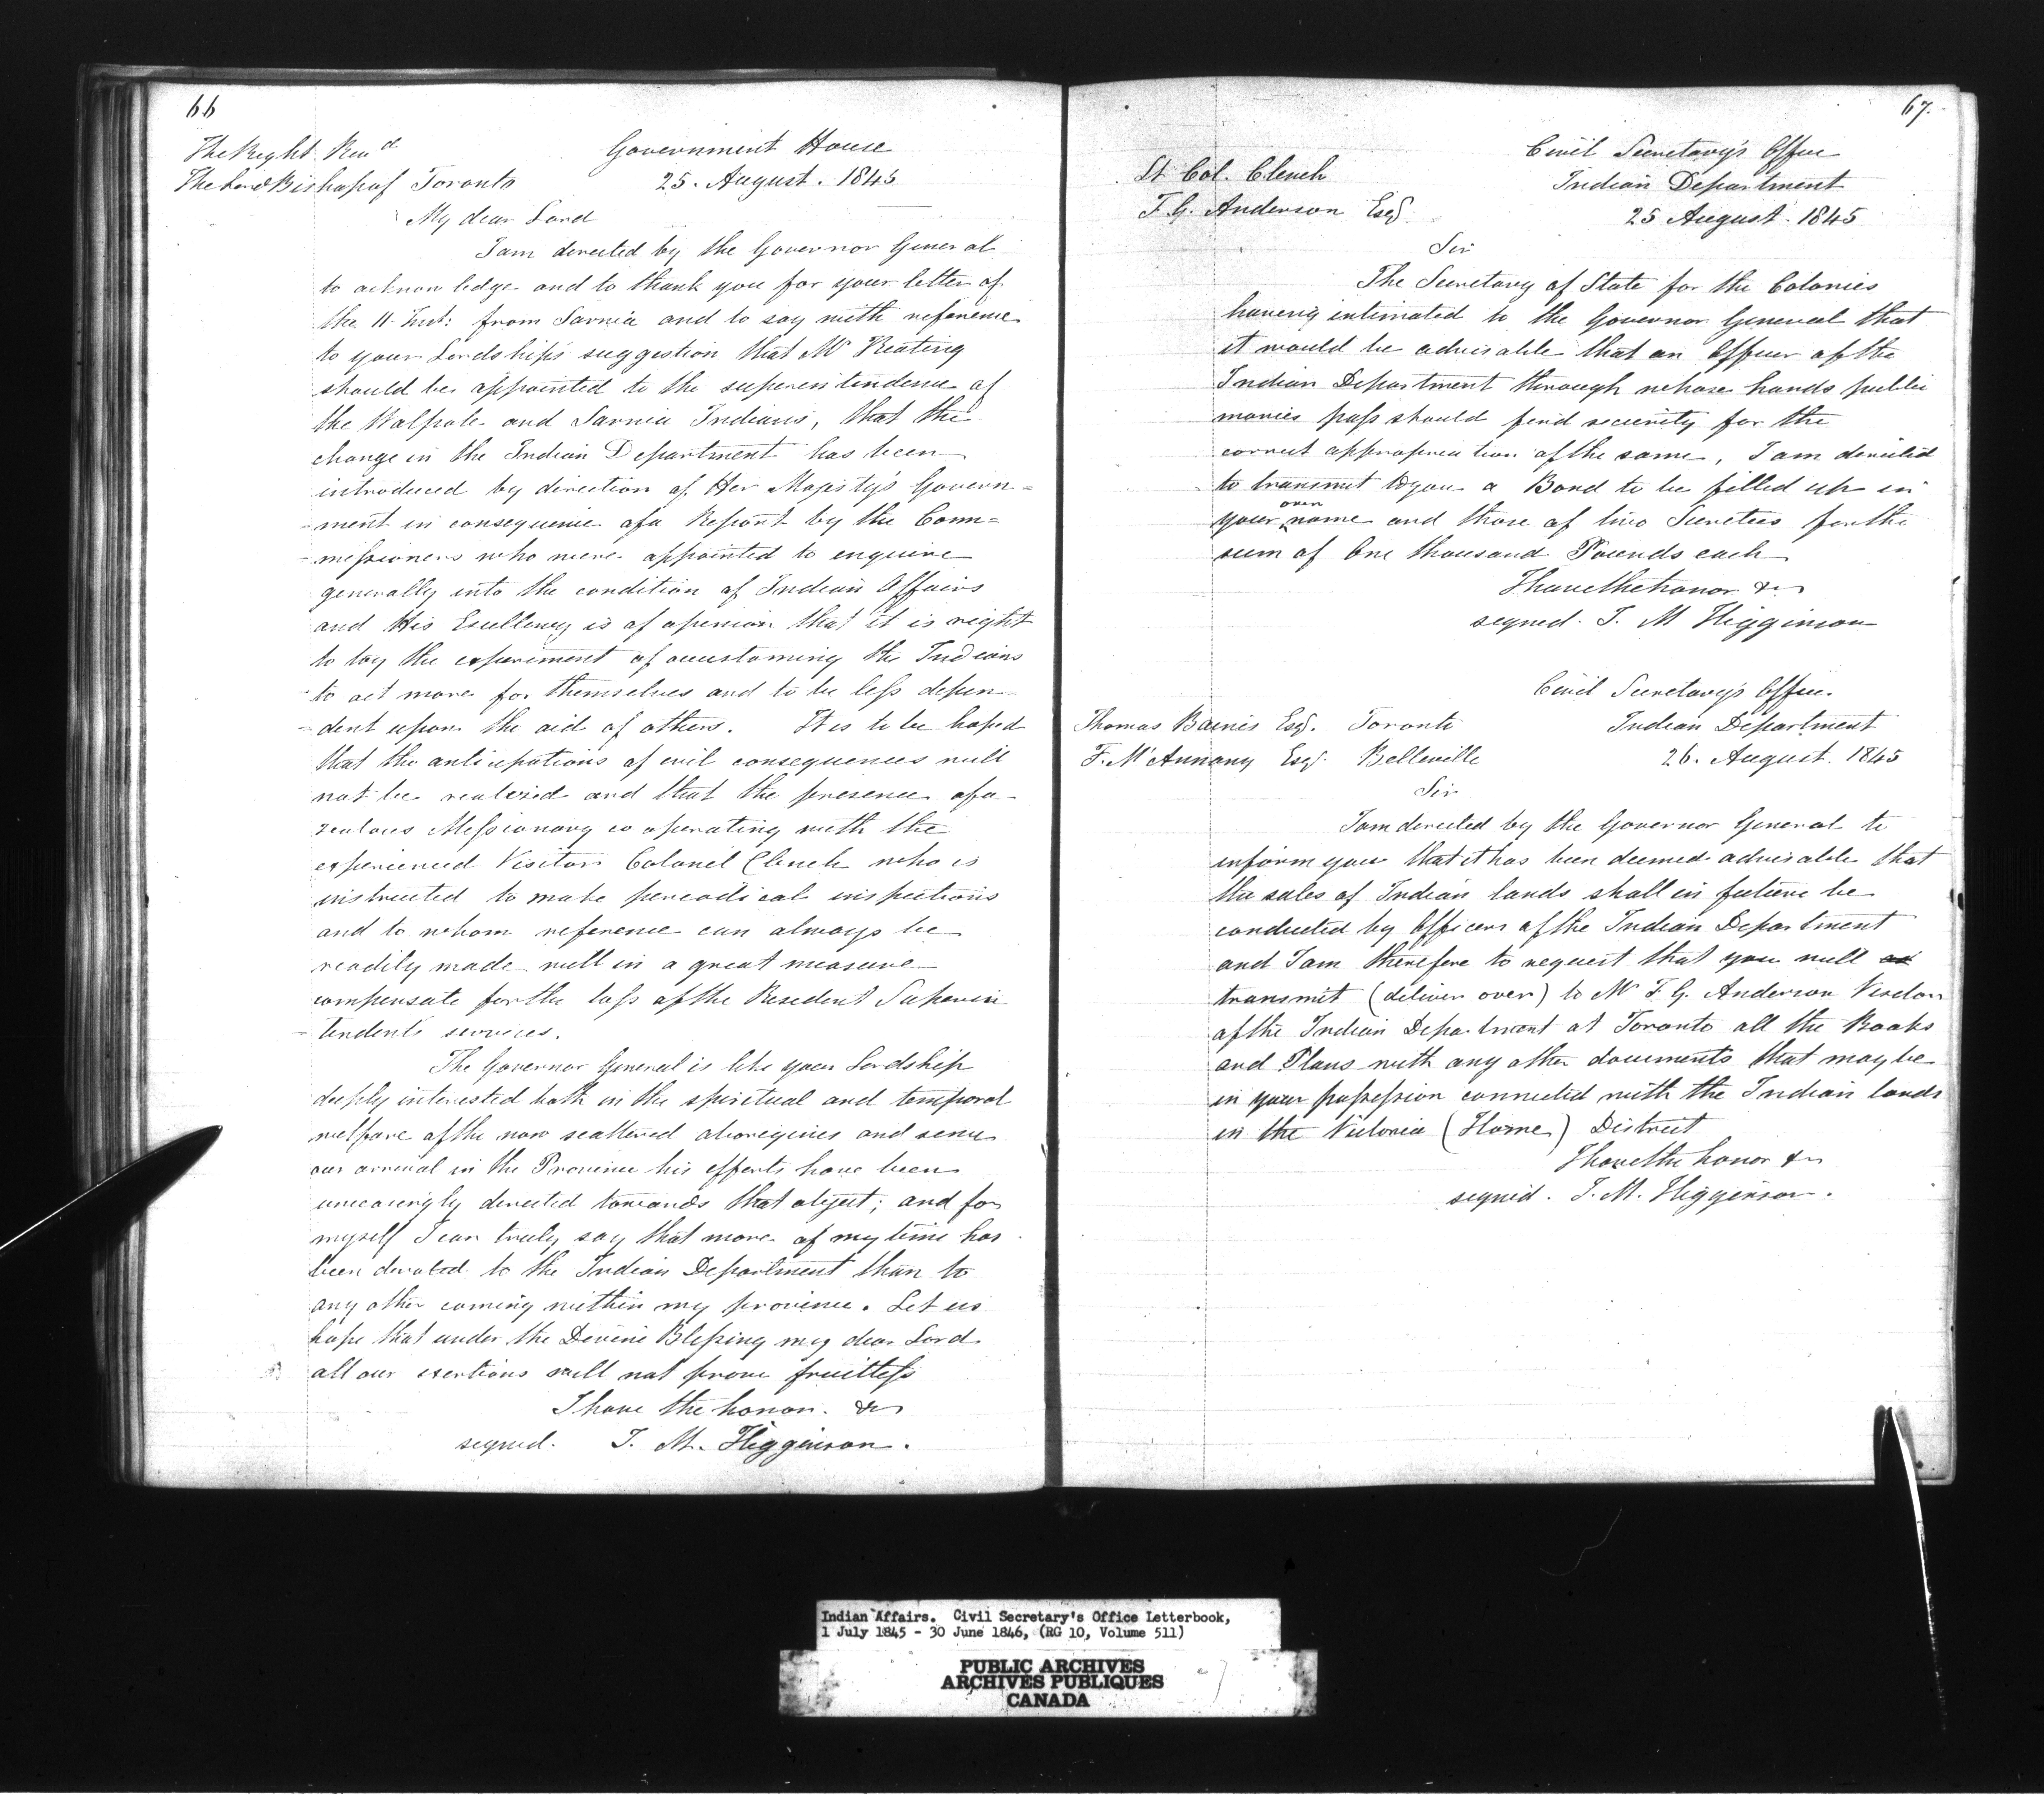 66
The Right Revd
The Lord Bishop of Toronto
Government House
25. August. 1845
My dear Lord
I am directed by the Governor General
to acknowledge and to thank you for your letter of
the 11 Inst: from Sarnia and to say with reference
to your Lordship's suggestion that Mr Keating
should be appointed to the superintendence of
the Walpole and Sarnia Indians, that the
change in the Indian Department has been
introduced by direction of Her Majesty's Govern=
=ment in consequence of a Report by the Com=
=missioners who were appointed to enquire
generally into the condition of Indian Affairs
and His Excellency is of opinion that it is right
to try the experiment of accustoming the Indians
to act more for themselves and to be less depen=
=dent upon the aid of others. It is to be hoped
that the anticipations of evil consequences will
not be realized and that the presence of a
zealous Missionary co operating with the
experienced Visitor Colonel Clench who is
instructed to make periodical inspections
and to whom reference can always be
readily made will in a great measure
compensate for the loss of the Resident Superin
=tendents services.
The Governor General is like your Lordship
deeply interested both in the spiritual and temporal
welfare of the now scattered aborigines and since
our arrival in the Province his efforts have been
unceasingly directed towards that object; and for
myself I can truly say that more of my time has
been devoted to the Indian Department than to
any other coming within my province. Let us
hope that under the Divine Blessing my dear Lord
all our exertions will not prove fruitless
I have the honor. &c
signed. J. M. Higginson.
67.
Lt Col. Clench
T. G. Anderson Esq
Civil Secretary's Office
Indian Department
25 August. 1845
Sir
The Secretary of State for the Colonies
having intimated to the Governor General that
it would be advisable that an Officer of the
Indian Department through whose hands public
monies pass should find security for the
correct appropriation of the same, I am directed
to transmit to you a Bond to be filled up in
your own name and those of two Sureties for the
sum of One thousand Pounds each
I have the honor &c
signed. J. M Higginson
Civil Secretary's Office.
Thomas Baines Esq. Toronto
F. McAnnany Esq. Belleville
Indian Department
26. August. 1845
Sir
I am directed by the Governor General to
inform you that it has been deemed advisable that
the sales of Indian lands shall in future be
conducted by Officers of the Indian Department
and I am therefore to request that you will
transmit (deliver over) to Mr T. G. Anderson Visitor
of the Indian Department at Toronto all the Books
and Plans with any other documents that may be
in your possession connected with the Indian lands
in the Victoria (Home) District
I have the honor &c
signed. J. M. Higginson.
Indian Affairs. Civil Secretary's Office Letterbook,
1 July 1845 - 30 June 1846, (RG 10, Volume 511)
PUBLIC ARCHIVES
ARCHIVES PUBLIQUES
CANADA